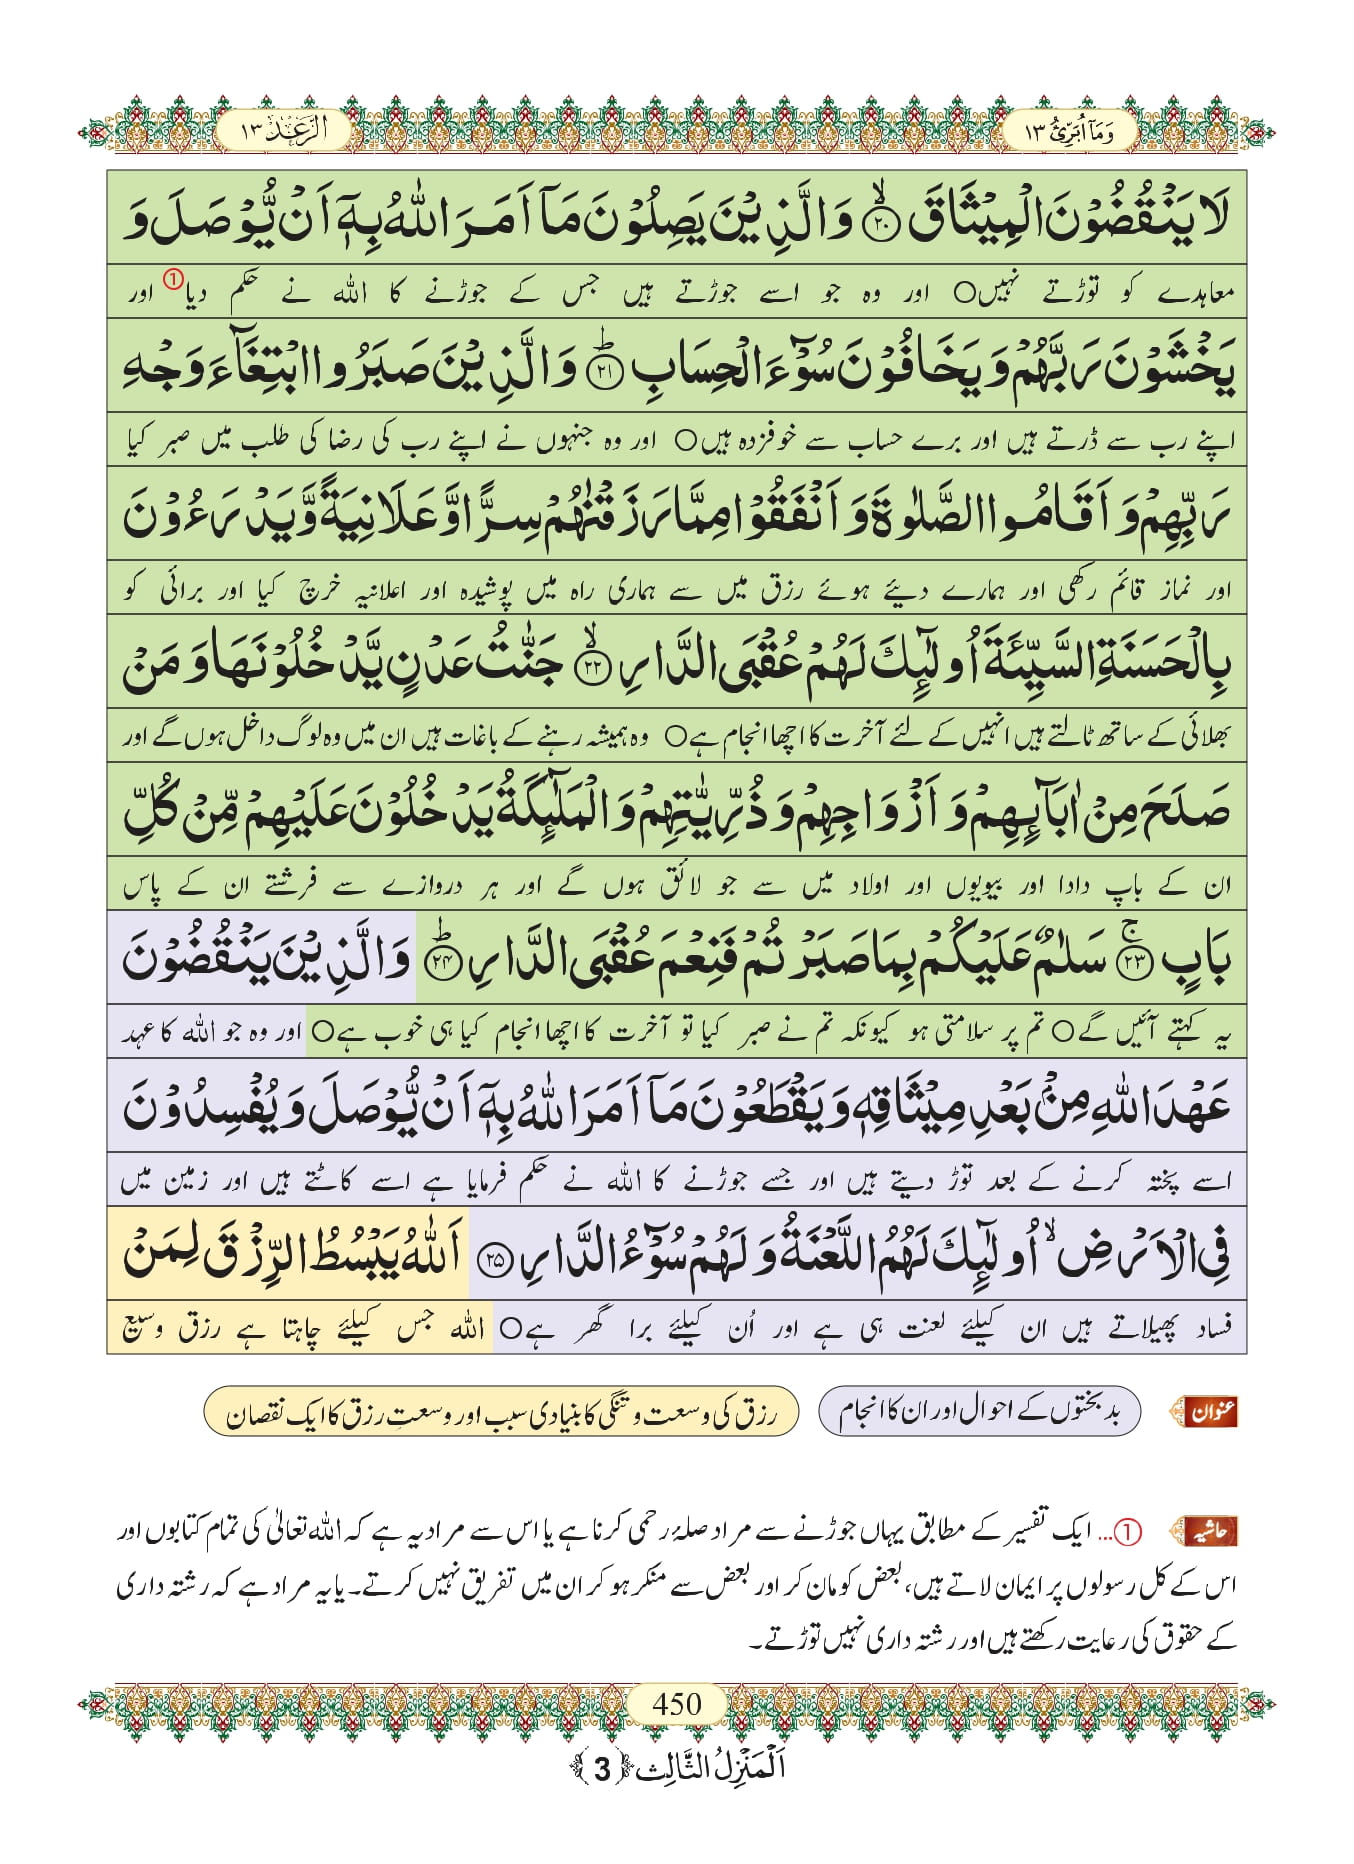 وَمَاۤ اُبَرِّئُ ١٣
الرَّعْد ١٣
لَا یَنْقُضُوْنَ الْمِیْثَاقَۙ ﴿۲۰﴾ وَ الَّذِیْنَ یَصِلُوْنَ مَاۤ اَمَرَ اللّٰهُ بِهٖۤ اَنْ یُّوْصَلَ وَ
معاہدے کو توڑتے نہیں○ اور وہ جو اسے جوڑتے ہیں جس کے جوڑنے کا اللہ نے حکم دیا① اور
یَخْشَوْنَ رَبَّهُمْ وَ یَخَافُوْنَ سُوْٓءَ الْحِسَابِؕ ﴿۲۱﴾ وَ الَّذِیْنَ صَبَرُوا ابْتِغَآءَ وَجْهِ
اپنے رب سے ڈرتے ہیں اور برے حساب سے خوفزدہ ہیں○ اور وہ جنہوں نے اپنے رب کی رضا کی طلب میں صبر کیا
رَبِّهِمْ وَ اَقَامُوا الصَّلٰوةَ وَ اَنْفَقُوْا مِمَّا رَزَقْنٰهُمْ سِرًّا وَّ عَلَانِیَةً وَّ یَدْرَءُوْنَ
اور نماز قائم رکھی اور ہمارے دیئے ہوئے رزق میں سے ہماری راہ میں پوشیدہ اور اعلانیہ خرچ کیا اور برائی کو
بِالْحَسَنَةِ السَّیِّئَةَ اُولٰٓىِٕكَ لَهُمْ عُقْبَى الدَّارِۙ ﴿۲۲﴾ جَنّٰتُ عَدْنٍ یَّدْخُلُوْنَهَا وَ مَنْ
بھلائی کے ساتھ ٹالتے ہیں انہیں کے لئے آخرت کا اچھا انجام ہے○ وہ ہمیشہ رہنے کے باغات ہیں ان میں وہ لوگ داخل ہوں گے اور
صَلَحَ مِنْ اٰبَآىِٕهِمْ وَ اَزْوَاجِهِمْ وَ ذُرِّیّٰتِهِمْ وَ الْمَلٰٓىِٕكَةُ یَدْخُلُوْنَ عَلَیْهِمْ مِّنْ كُلِّ
ان کے باپ دادا اور بیویوں اور اولاد میں سے جو لائق ہوں گے اور ہر دروازے سے فرشتے ان کے پاس
بَابٍۚ ﴿۲۳﴾ سَلٰمٌ عَلَیْكُمْ بِمَا صَبَرْتُمْ فَنِعْمَ عُقْبَى الدَّارِؕ ﴿۲۴﴾ وَ الَّذِیْنَ یَنْقُضُوْنَ
یہ کہتے آئیں گے○ تم پر سلامتی ہو کیونکہ تم نے صبر کیا تو آخرت کا اچھا انجام کیا ہی خوب ہے○ اور وہ جو اللہ کا عہد
عَهْدَ اللّٰهِ مِنْۢ بَعْدِ مِیْثَاقِهٖ وَ یَقْطَعُوْنَ مَاۤ اَمَرَ اللّٰهُ بِهٖۤ اَنْ یُّوْصَلَ وَ یُفْسِدُوْنَ
اسے پختہ کرنے کے بعد توڑ دیتے ہیں اور جسے جوڑنے کا اللہ نے حکم فرمایا ہے اسے کاٹتے ہیں اور زمین میں
فِی الْاَرْضِۙ اُولٰٓىِٕكَ لَهُمُ اللَّعْنَةُ وَ لَهُمْ سُوْٓءُ الدَّارِ ﴿۲۵﴾ اَللّٰهُ یَبْسُطُ الرِّزْقَ لِمَنْ
فساد پھیلاتے ہیں ان کیلئے لعنت ہی ہے اور اُن کیلئے برا گھر ہے○ اللہ جس کیلئے چاہتا ہے رزق وسیع
عنوان بدبختوں کے احوال اور ان کا انجام رزق کی وسعت و تنگی کا بنیادی سبب اور وسعتِ رزق کا ایک نقصان
حاشیہ ①... ایک تفسیر کے مطابق یہاں جوڑنے سے مراد صلۂ رحمی کرنا ہے یا اس سے مراد یہ ہے کہ اللہ تعالیٰ کی تمام کتابوں اور
اس کے کل رسولوں پر ایمان لاتے ہیں، بعض کو مان کر اور بعض سے منکر ہو کر ان میں تفریق نہیں کرتے۔ یا یہ مراد ہے کہ رشتہ داری
کے حقوق کی رعایت رکھتے ہیں اور رشتہ داری نہیں توڑتے۔
450
اَلْمَنْزِلُ الثَّالِث ﴿3﴾